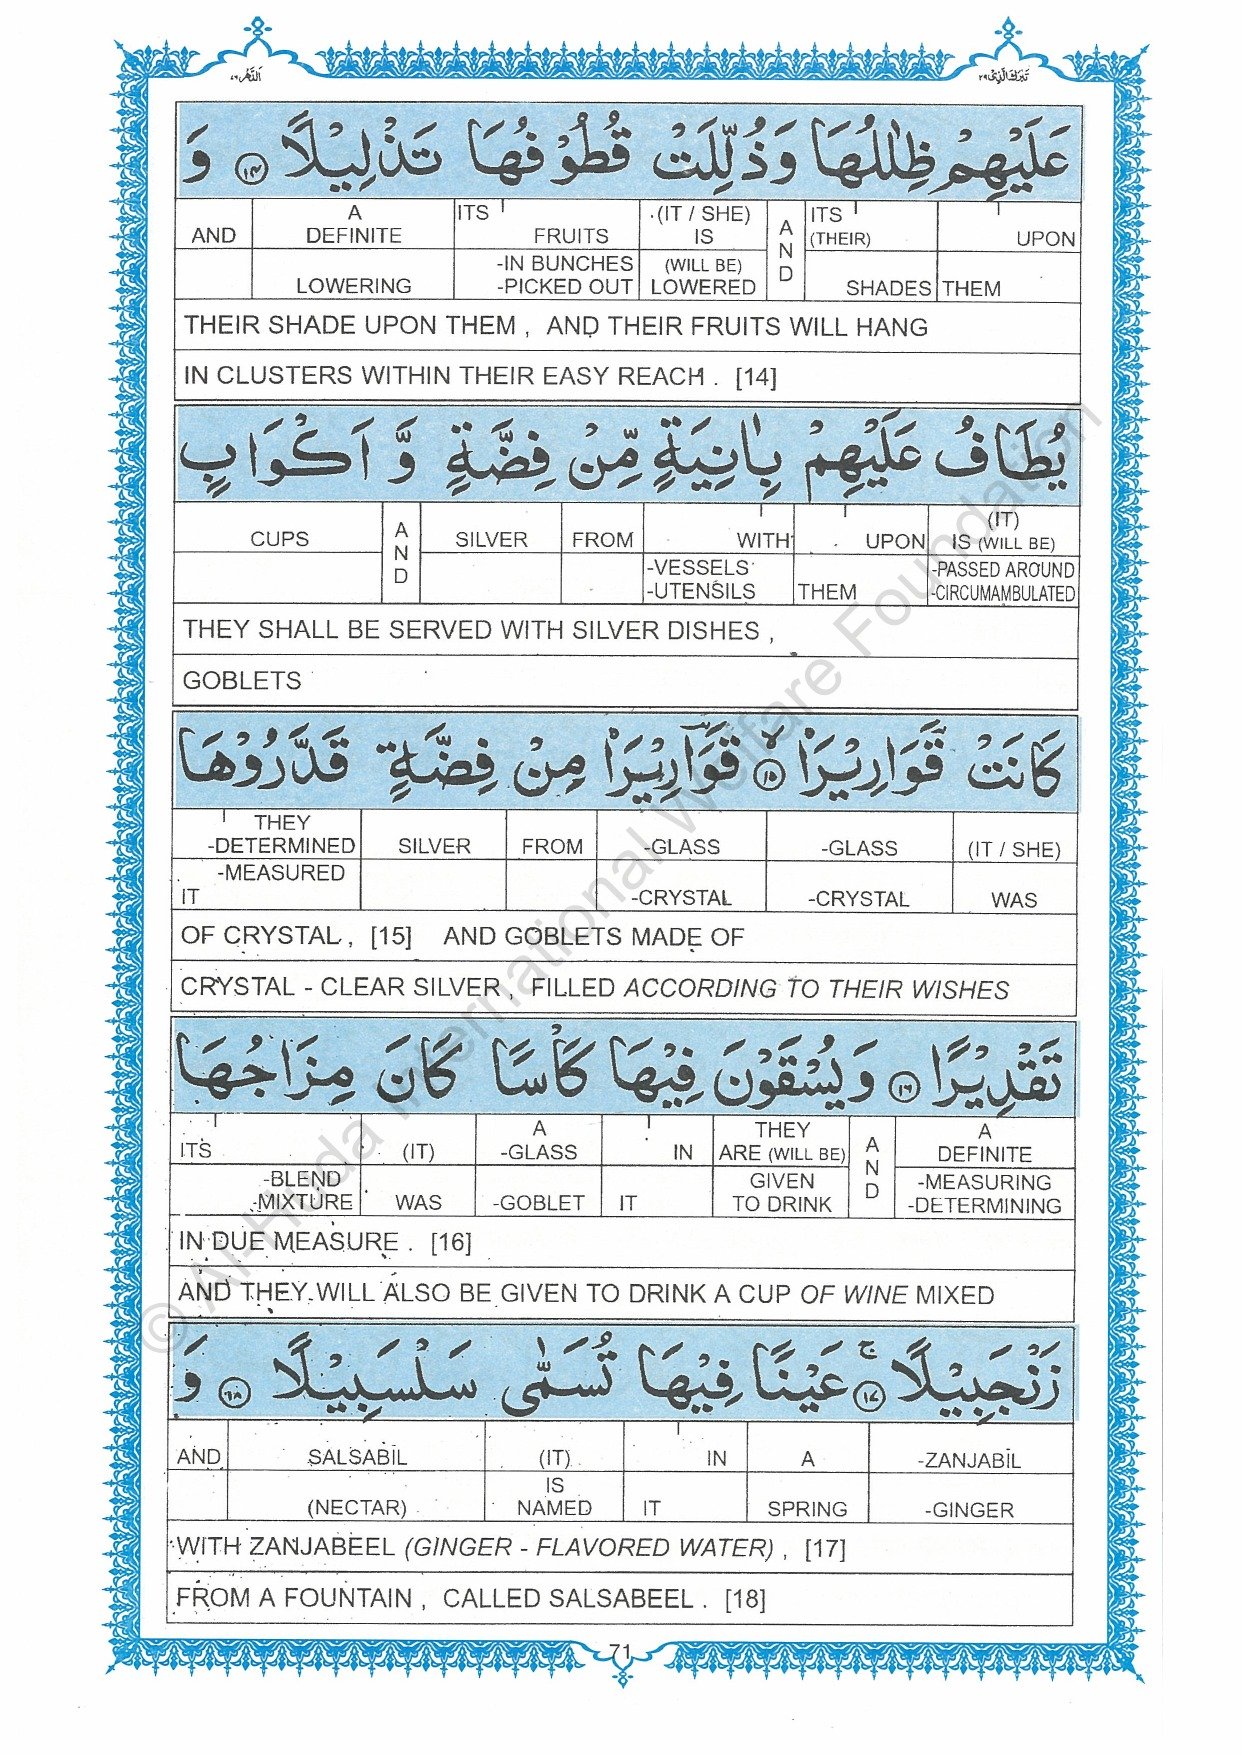 الدّهر ٧٦ تبٰرك الّذی ٢٩
عَلَيْهِمْ ظِلٰلُهَا وَذُلِّلَتْ قُطُوْفُهَا تَذْلِيْلًا ۝١٤ وَ
AND A DEFINITE LOWERING ITS FRUITS -IN BUNCHES -PICKED OUT (IT / SHE) IS (WILL BE) LOWERED AND ITS (THEIR) SHADES UPON THEM
THEIR SHADE UPON THEM , AND THEIR FRUITS WILL HANG
IN CLUSTERS WITHIN THEIR EASY REACH . [14]
يُطَافُ عَلَيْهِمْ بِاٰنِيَةٍ مِّنْ فِضَّةٍ وَّ اَكْوَابٍ
CUPS AND SILVER FROM WITH -VESSELS -UTENSILS UPON THEM (IT) IS (WILL BE) -PASSED AROUND -CIRCUMAMBULATED
THEY SHALL BE SERVED WITH SILVER DISHES ,
GOBLETS
كَانَتْ قَوَارِيْرَا۠ ۝١٥ قَوَارِيْرَا۠ مِنْ فِضَّةٍ قَدَّرُوْهَا
THEY -DETERMINED -MEASURED IT SILVER FROM -GLASS -CRYSTAL -GLASS -CRYSTAL (IT / SHE) WAS
OF CRYSTAL , [15] AND GOBLETS MADE OF
CRYSTAL - CLEAR SILVER , FILLED ACCORDING TO THEIR WISHES
تَقْدِيْرًا ۝١٦ وَيُسْقَوْنَ فِيْهَا كَاْسًا كَانَ مِزَاجُهَا
ITS -BLEND -MIXTURE (IT) WAS A -GLASS -GOBLET IN IT THEY ARE (WILL BE) GIVEN TO DRINK AND A DEFINITE -MEASURING -DETERMINING
IN DUE MEASURE . [16]
AND THEY WILL ALSO BE GIVEN TO DRINK A CUP OF WINE MIXED
زَنْجَبِيْلًا ۝١٧ۚ عَيْنًا فِيْهَا تُسَمّٰى سَلْسَبِيْلًا ۝١٨ وَ
AND SALSABĪL (NECTAR) (IT) IS NAMED IN IT A SPRING -ZANJABĪL -GINGER
WITH ZANJABEEL (GINGER - FLAVORED WATER) , [17]
FROM A FOUNTAIN , CALLED SALSABEEL . [18]
71
© Al-Huda International Welfare Foundation